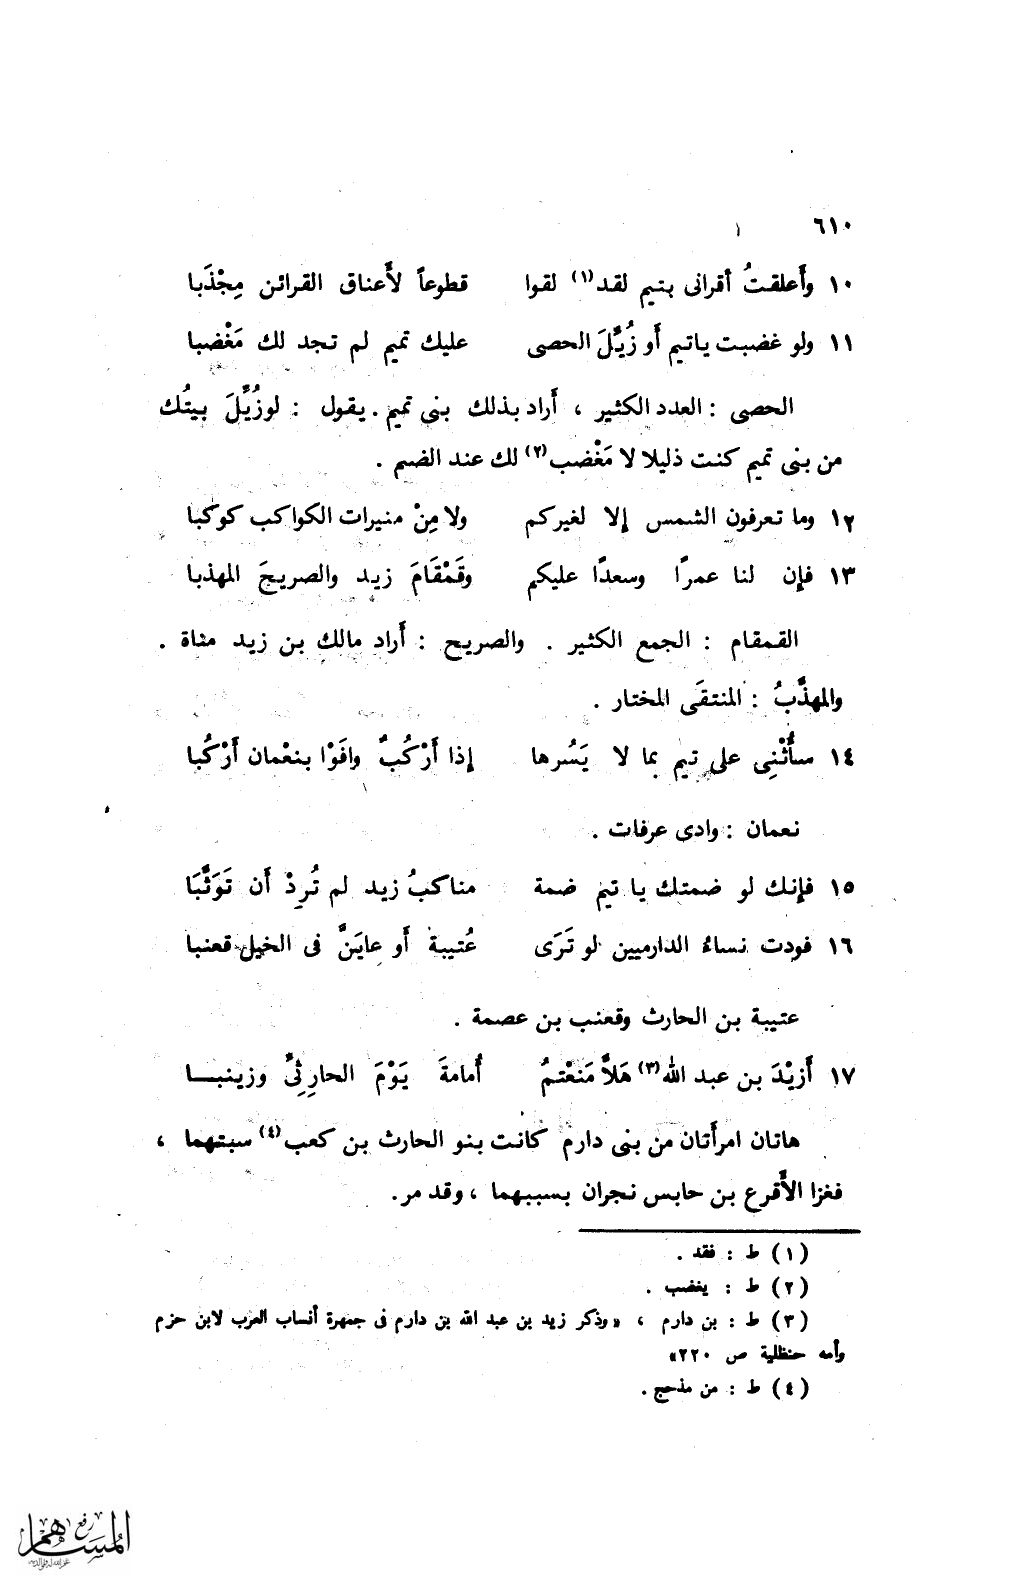 ٦١٠
١٠ وأَعلقتُ أقرانى بتيم لقد(١) لقوا قطوعاً لأَعناق القرائن مِجْذَبا
١١ ولو غضبت ياتيم أَو زُيِّلَ الحصى عليك تميم لم تجد لك مَغْضبا
الحصى : العدد الكثير ، أَراد بذلك بنى تميم . يقول : لوزُيِّلَ بيتُك
من بنى تميم كنت ذليلا لا مَغْضب(٢) لك عند الضيم .
١٢ وما تعرفون الشمس إلا لغيركم ولا مِنْ منيرات الكواكب كوكبا
١٣ فإن لنا عمرًا وسعدًا عليكم وقَمْقَامَ زيد والصريحَ المهذبا
القمقام : الجمع الكثير . والصريح : أَراد مالك بن زيد مناة .
والمهذَّبُ : المنتقَى المختار .
١٤ سأُثْنِى على تيم بما لا يَسُرها إذا أَرْكُبٌ وافَوْا بنعْمان أَرْكُبا
نعمان : وادى عرفات .
١٥ فإنك لو ضمتك يا تيم ضمة مناكبُ زيد لم تُرِدْ أَن تَوَثَّبَا
١٦ فودت نساءُ الدارميين لو تَرَى عُتيبة أَو عايَنَّ فى الخيل قعنبا
عتيبة بن الحارث وقعنب بن عصمة .
١٧ أَزيْدَ بن عبد الله(٣) هَلاَّ مَنَعْتمُ أُمامةَ يَوْمَ الحارِثِيِّ وزينبا
هاتان امرأَتان من بنى دارم كانت بنو الحارث بن كعب(٤) سبتهما ،
فغزا الأَقرع بن حابس نجران بسببهما ، وقد مر .
(١) ط : فقد .
(٢) ط : يغضب .
(٣) ط : بن دارم ، «وذكر زيد بن عبد الله بن دارم فى جمهرة أنساب العرب لابن حزم
وأمه حنظلية ص ٢٢٠»
(٤) ط : من مذحج .